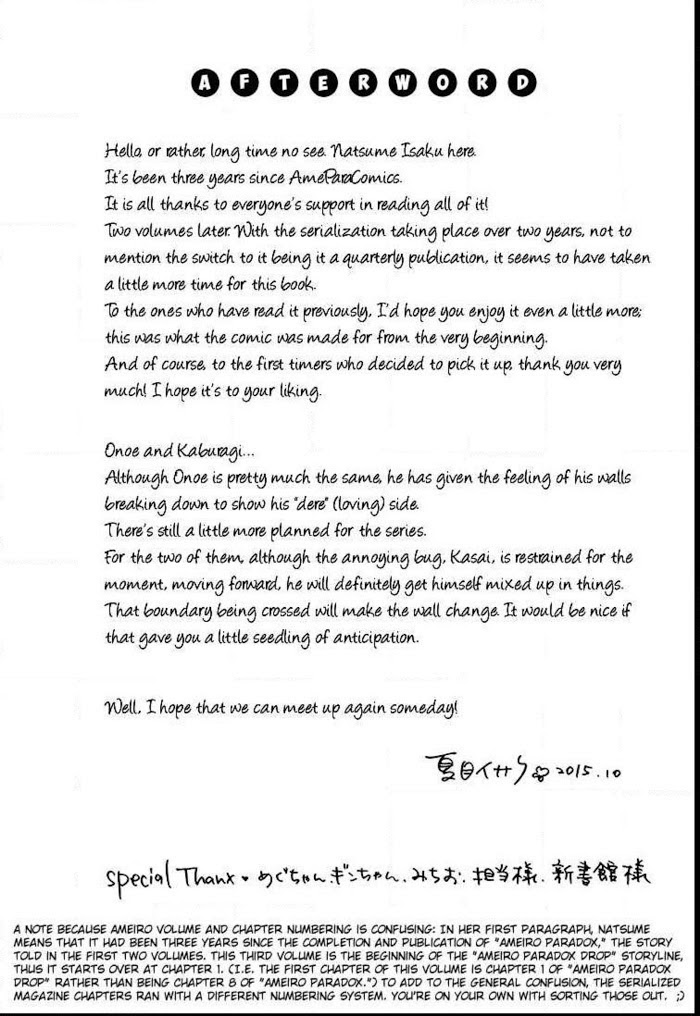 AFTERWORD
Hello, or rather, long time no see. Natsume Isaku here.
It's been three years since AmeParaComics.
It is all thanks to everyone's support in reading all of it!
Two volumes later. With the serialization taking place over two years, not to
mention the switch to it being it a quarterly publication, it seems to have taken
a little more time for this book.
To the ones who have read it previously, I'd hope you enjoy it even a little more;
this was what the comic was made for from the very beginning.
And of course, to the first timers who decided to pick it up, thank you very
much! I hope it's to your liking.
Onoe and Kaburagi...
Although Onoe is pretty much the same, he has given the feeling of his walls
breaking down to show his "dere" (loving) side.
There's still a little more planned for the series.
For the two of them, although the annoying bug, Kasai, is restrained for the
moment, moving forward, he will definitely get himself mixed up in things.
That boundary being crossed will make the wall change. It would be nice if
that gave you a little seedling of anticipation.
Well, I hope that we can meet up again someday!
夏目イサク 2015.10
special Thanx ♥ めぐちゃん.ギンちゃん.みちお.担当様.新書館様
A NOTE BECAUSE AMEIRO VOLUME AND CHAPTER NUMBERING IS CONFUSING: IN HER FIRST PARAGRAPH, NATSUME
MEANS THAT IT HAD BEEN THREE YEARS SINCE THE COMPLETION AND PUBLICATION OF "AMEIRO PARADOX," THE STORY
TOLD IN THE FIRST TWO VOLUMES. THIS THIRD VOLUME IS THE BEGINNING OF THE "AMEIRO PARADOX DROP" STORYLINE,
THUS IT STARTS OVER AT CHAPTER 1. (I.E. THE FIRST CHAPTER OF THIS VOLUME IS CHAPTER 1 OF "AMEIRO PARADOX
DROP" RATHER THAN BEING CHAPTER 8 OF "AMEIRO PARADOX.") TO ADD TO THE GENERAL CONFUSION, THE SERIALIZED
MAGAZINE CHAPTERS RAN WITH A DIFFERENT NUMBERING SYSTEM. YOU'RE ON YOUR OWN WITH SORTING THOSE OUT. ;)